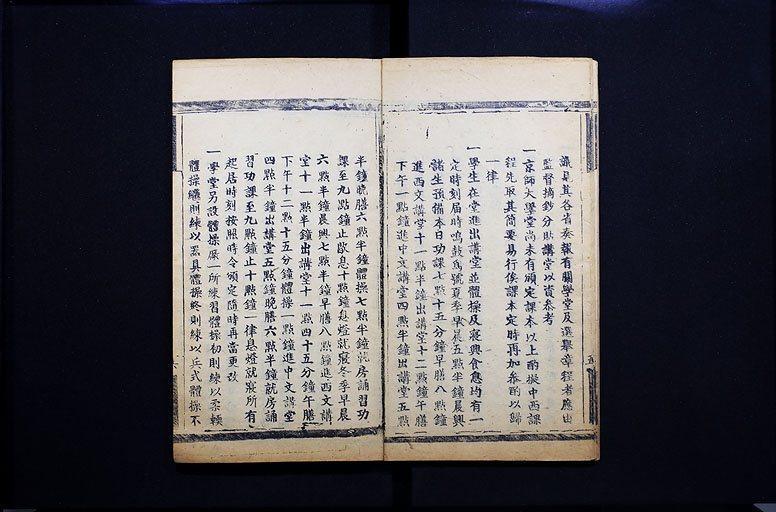 議見其各省奏報有關學堂及選舉章程者應由
監督摘鈔分貼講堂以資參考
一京師大學堂尚未有頒定課本以上酌擬中西課
程先取其簡要易行俟課本定時再加參酌以歸
一律
一學生在堂進出講堂並體操及寢興食息均有一
定時刻屆時鳴鼓為號夏季早晨五點半鐘晨興
諸生預備本日功課七點十五分鐘早膳八點鐘
進西文講堂十一點半鐘出講堂十二點鐘午膳
下午一點鐘進中文講堂四點半鐘出講堂五點
半鐘晚膳六點半鐘體操七點半鐘就房誦習功
課至九點鐘止歇息十點鐘息燈就寢冬季早晨
六點半鐘晨興七點半鐘早膳八點鐘進西文講
堂十一點半鐘出講堂十一點四十五分鐘午膳
下午十二點十五分鐘體操一點鐘進中文講堂
四點半鐘出講堂五點鐘晚膳六點半鐘就房誦
習功課至九點鐘止十點鐘一律息燈就寢所有
起居時刻按照時令頒定隨時再當更改
一學堂另設體操廠一所練習體操初則練以柔輭
體操繼則練以器具體操終則練以兵式體操不